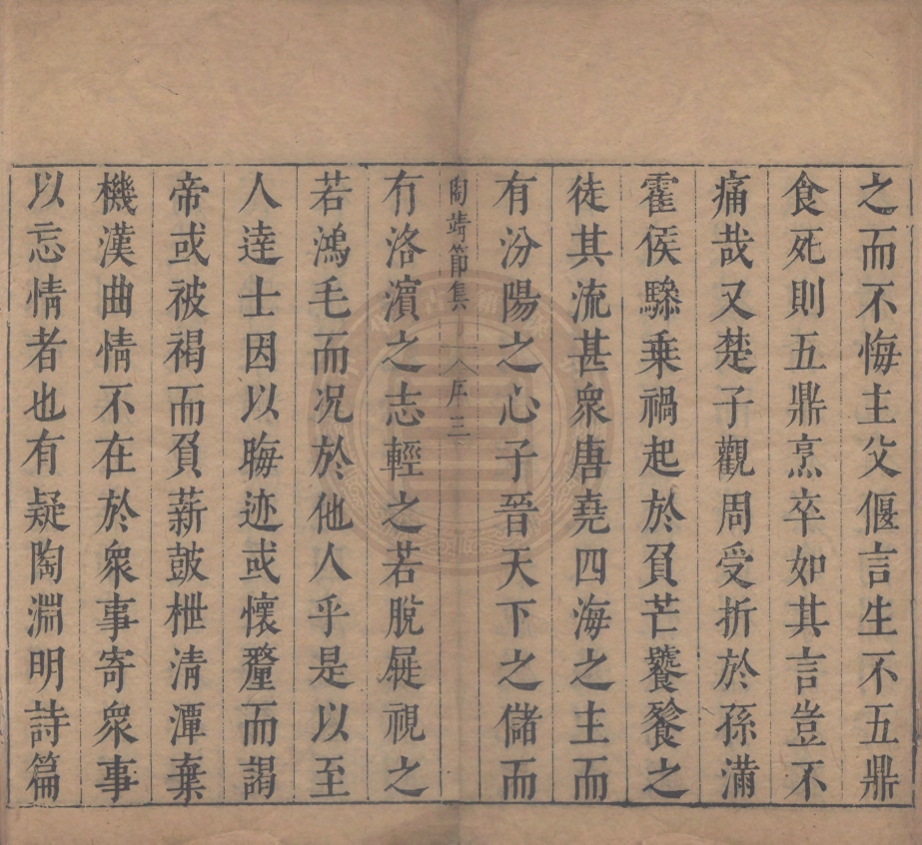 之而不悔主父偃言生不五鼎
食死則五鼎烹卒如其言豈不
痛哉又楚子觀周受折於孫滿
霍侯驂乗禍起於負芒饕餮之
徒其流甚衆唐堯四海之主而
有汾陽之心子晉天下之儲而
陶靖節集
序 三
有洛濵之志輕之若脫屣視之
若鴻毛而况於他人乎是以至
人達士因以晦迹或懷釐而謁
帝或被褐而負薪鼓枻清潭棄
機漢曲情不在於衆事寄衆事
以忘情者也有疑陶淵明詩篇